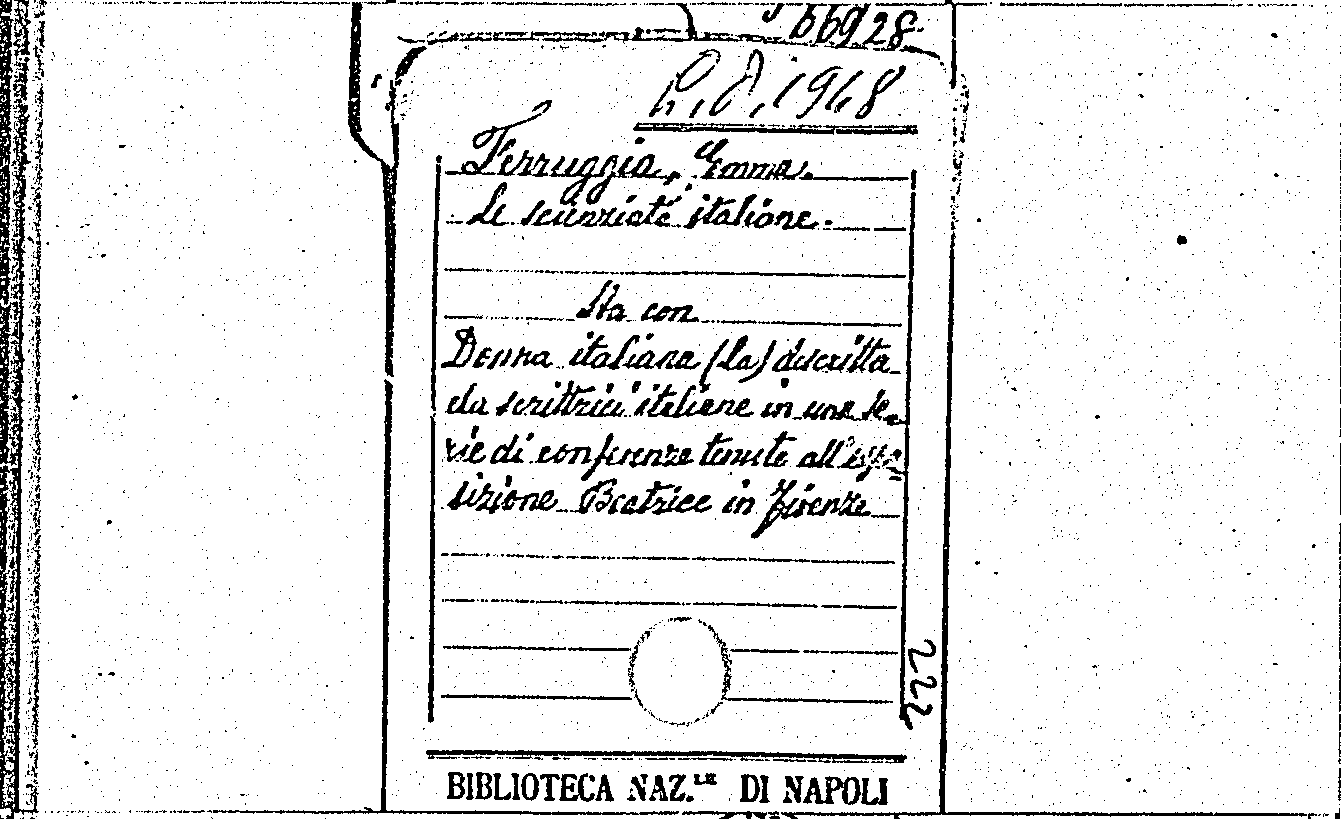 66928
L.D. 1968
Ferruggia, Emma.
Le scienziate italiane.
Sta con
Donna italiana (La) descritta
da scrittrici italiane in una se-
rie di conferenze tenute all'espo-
sizione Beatrice in Firenze
222
BIBLIOTECA NAZ.LE DI NAPOLI